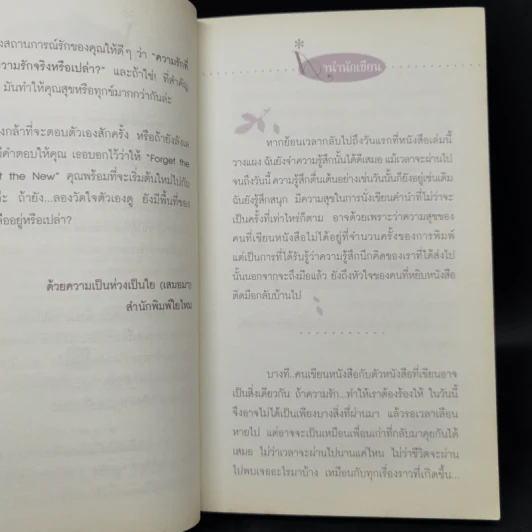 งสถานการณ์รักของคุณให้ดีๆ ว่า "ความรักที่
วามรักจริงหรือเปล่า?" และถ้าใช่! ที่สำคัญ
มันทำให้คุณสุขหรือทุกข์มากกว่ากันล่ะ
งกล้าที่จะตอบตัวเองสักครั้ง หรือถ้ายังลังเล
มีคำตอบให้คุณ เธอบอกไว้ว่าให้ "Forget the
t the New" คุณพร้อมที่จะเริ่มต้นใหม่ไปกับ
ถ้ายัง...ลองวัดใจตัวเองดู ยังมีพื้นที่ของ
ลืออยู่หรือเปล่า?
ด้วยความเป็นห่วงเป็นใย (เสมอมา)
สำนักพิมพ์ใยไหม
คำนำนักเขียน
หากย้อนเวลากลับไปถึงวันแรกที่หนังสือเล่มนี้
วางแผง ฉันยังจำความรู้สึกนั้นได้ดีเสมอ แม้เวลาจะผ่านไป
จนถึงวันนี้ ความรู้สึกตื่นเต้นอย่างเช่นวันนั้นก็ยังอยู่เช่นเดิม
ฉันยังรู้สึกสนุก มีความสุขในการนั่งเขียนคำนำที่ไม่ว่าจะ
เป็นครั้งที่เท่าไหร่ก็ตาม อาจด้วยเพราะว่าความสุขของ
คนที่เขียนหนังสือไม่ได้อยู่ที่จำนวนครั้งของการพิมพ์
แต่เป็นการที่ได้รับรู้ว่าความรู้สึกนึกคิดของเราที่ได้ส่งไป
นั้นนอกจากจะถึงมือแล้ว ยังถึงหัวใจของคนที่หยิบหนังสือ
ติดมือกลับบ้านไป
. . . . . . . . . . . .
บางที..คนเขียนหนังสือกับตัวหนังสือที่เขียนอาจ
เป็นสิ่งเดียวกัน ถ้าความรัก...ทำให้เราต้องร้องไห้ ในวันนี้
จึงอาจไม่ได้เป็นเพียงบางสิ่งที่ผ่านมา แล้วรอเวลาเลือน
หายไป แต่อาจจะเป็นเหมือนเพื่อนเก่าที่กลับมาคุยกันได้
เสมอ ไม่ว่าเวลาจะผ่านไปนานแค่ไหน ไม่ว่าชีวิตจะผ่าน
ไปพบเจออะไรมาบ้าง เหมือนกับทุกเรื่องราวที่เกิดขึ้น...